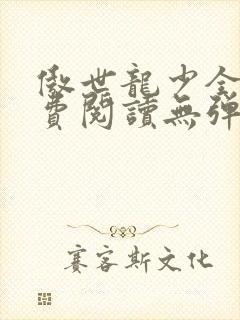 傲世龍少全
費閱讀無彈
賽客斯文化